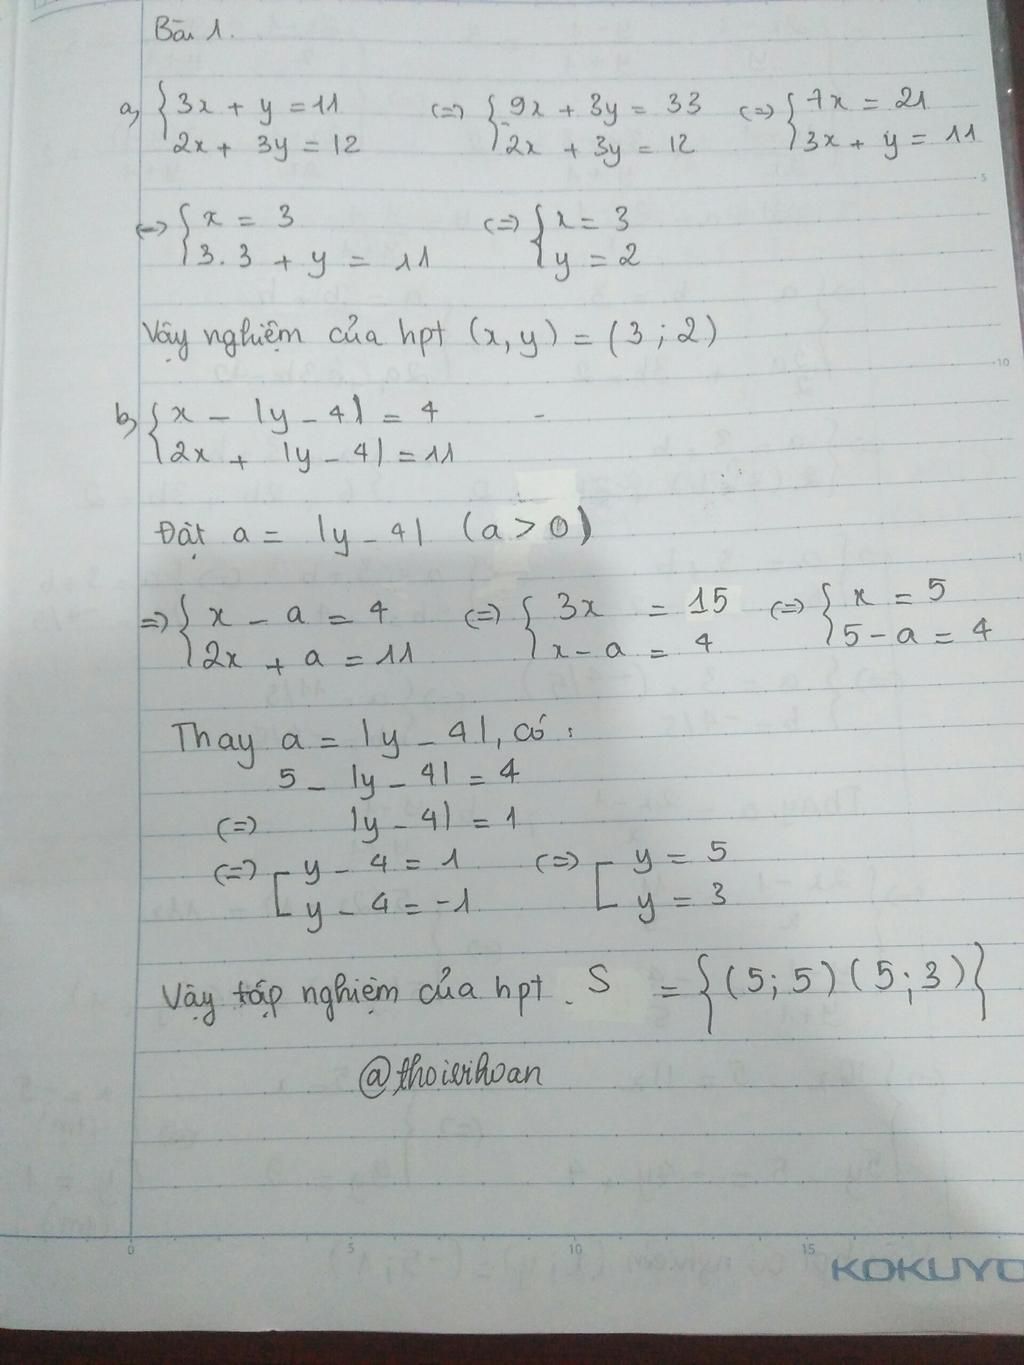 Bài 1.
a, { 3x + y = 11 (=) { 9x + 3y = 33 (=) { 7x = 21
2x + 3y = 12 2x + 3y = 12 3x + y = 11
(=) { x = 3 (=) { x = 3
3.3 + y = 11 y = 2
Vậy nghiệm của hpt (x, y) = (3 ; 2)
b, { x - |y - 4| = 4
2x + |y - 4| = 11
Đặt a = |y - 4| (a > 0)
=) { x - a = 4 (=) { 3x = 15 (=) { x = 5
2x + a = 11 x - a = 4 5 - a = 4
Thay a = |y - 4|, có :
5 - |y - 4| = 4
(=) |y - 4| = 1
(=) [ y - 4 = 1 (=) [ y = 5
y - 4 = -1 y = 3
Vậy tập nghiệm của hpt . S = {(5; 5) (5; 3)}
@thoiexihoan
5
10
0 5 10 15
KOKUYO